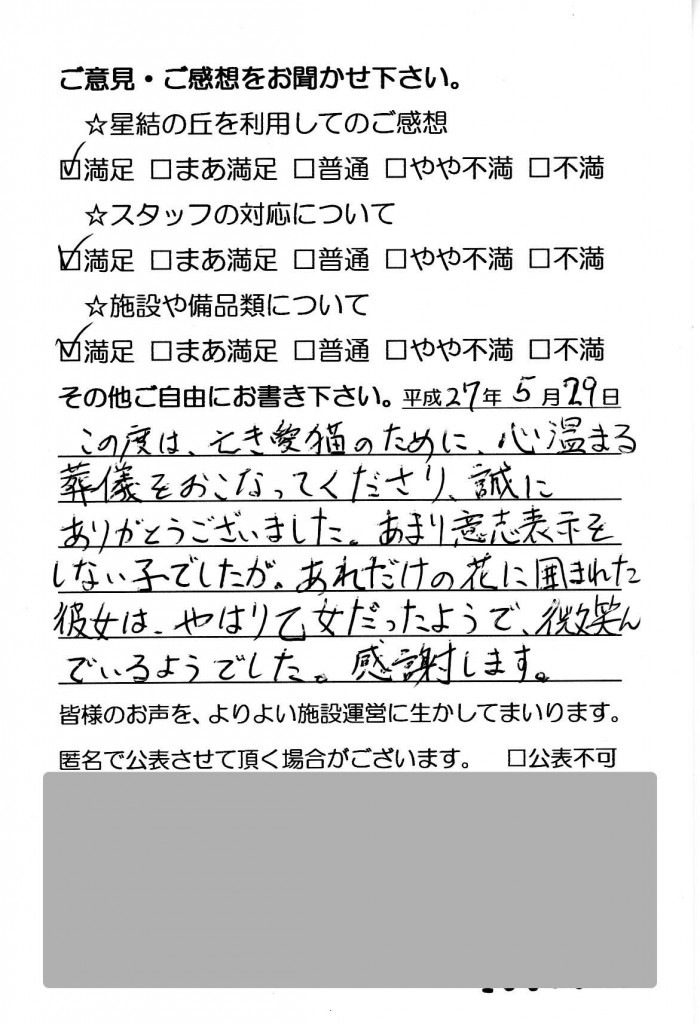 ご意見・ご感想をお聞かせ下さい。
☆星結の丘を利用してのご感想
☑満足 □まあ満足 □普通 □やや不満 □不満
☆スタッフの対応について
☑満足 □まあ満足 □普通 □やや不満 □不満
☆施設や備品類について
☑満足 □まあ満足 □普通 □やや不満 □不満
その他ご自由にお書き下さい。平成27年5月29日
この度は、亡き愛猫のために、心温まる
葬儀をおこなってくださり、誠に
ありがとうございました。あまり意志表示を
しない子でしたが。あれだけの花に囲まれた
彼女は、やはり乙女だったようで、微笑ん
でいるようでした。感謝します。
皆様のお声を、よりよい施設運営に生かしてまいります。
匿名で公表させて頂く場合がございます。 □公表不可